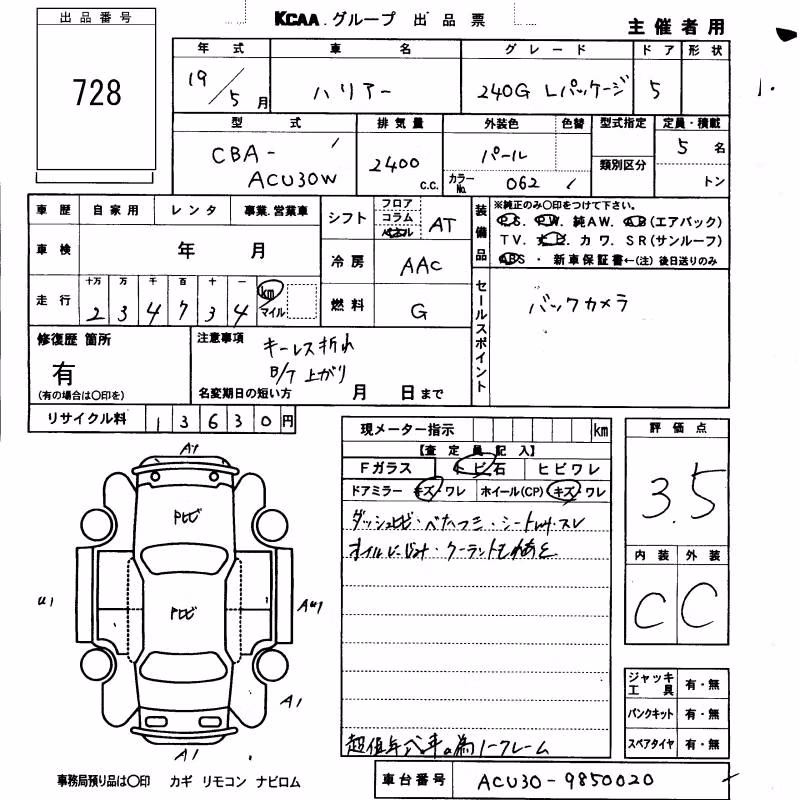 KCAA グループ 出品票
主催者用
出品番号
728
年式 車名 グレード ドア 形状
19/5月 ハリアー 240G Lパッケージ 5
型式 排気量 外装色 色替 型式指定 定員・積載
CBA-ACU30W 2400 c.c. パール 類別区分 5名
カラーNo. 062 トン
車歴 自家用 レンタ 事業.営業車
シフト フロア コラム AT
車検 年 月
冷房 AAC
走行 十万 万 千 百 十 一 km マイル
2 3 4 7 3 4
燃料 G
装備品 ※純正のみ○印をつけて下さい。
P.S. P.W. 純AW. A.B(エアバック)
TV. カワ. SR(サンルーフ)
ABS・新車保証書←(注)後日送りのみ
セールスポイント
バックカメラ
修復歴 箇所
有
(有の場合は○印を)
注意事項
キーレス折れ
B/T 上がり
名変期日の短い方 月 日まで
リサイクル料 13630円
現メーター指示 km
【査定員記入】
Fガラス トビ石 ヒビワレ
ドアミラー キズ・ワレ ホイール(CP) キズ・ワレ
オイルにじみ・クーラントもれあと
超低年式車の為ノークレーム
評価点
3.5
内装 外装
C C
A1
U1
A1
A1
ジャッキ工具 有・無
パンクキット 有・無
スペアタイヤ 有・無
事務局預り品は○印 カギ リモコン ナビロム
車台番号 ACU30-9850020